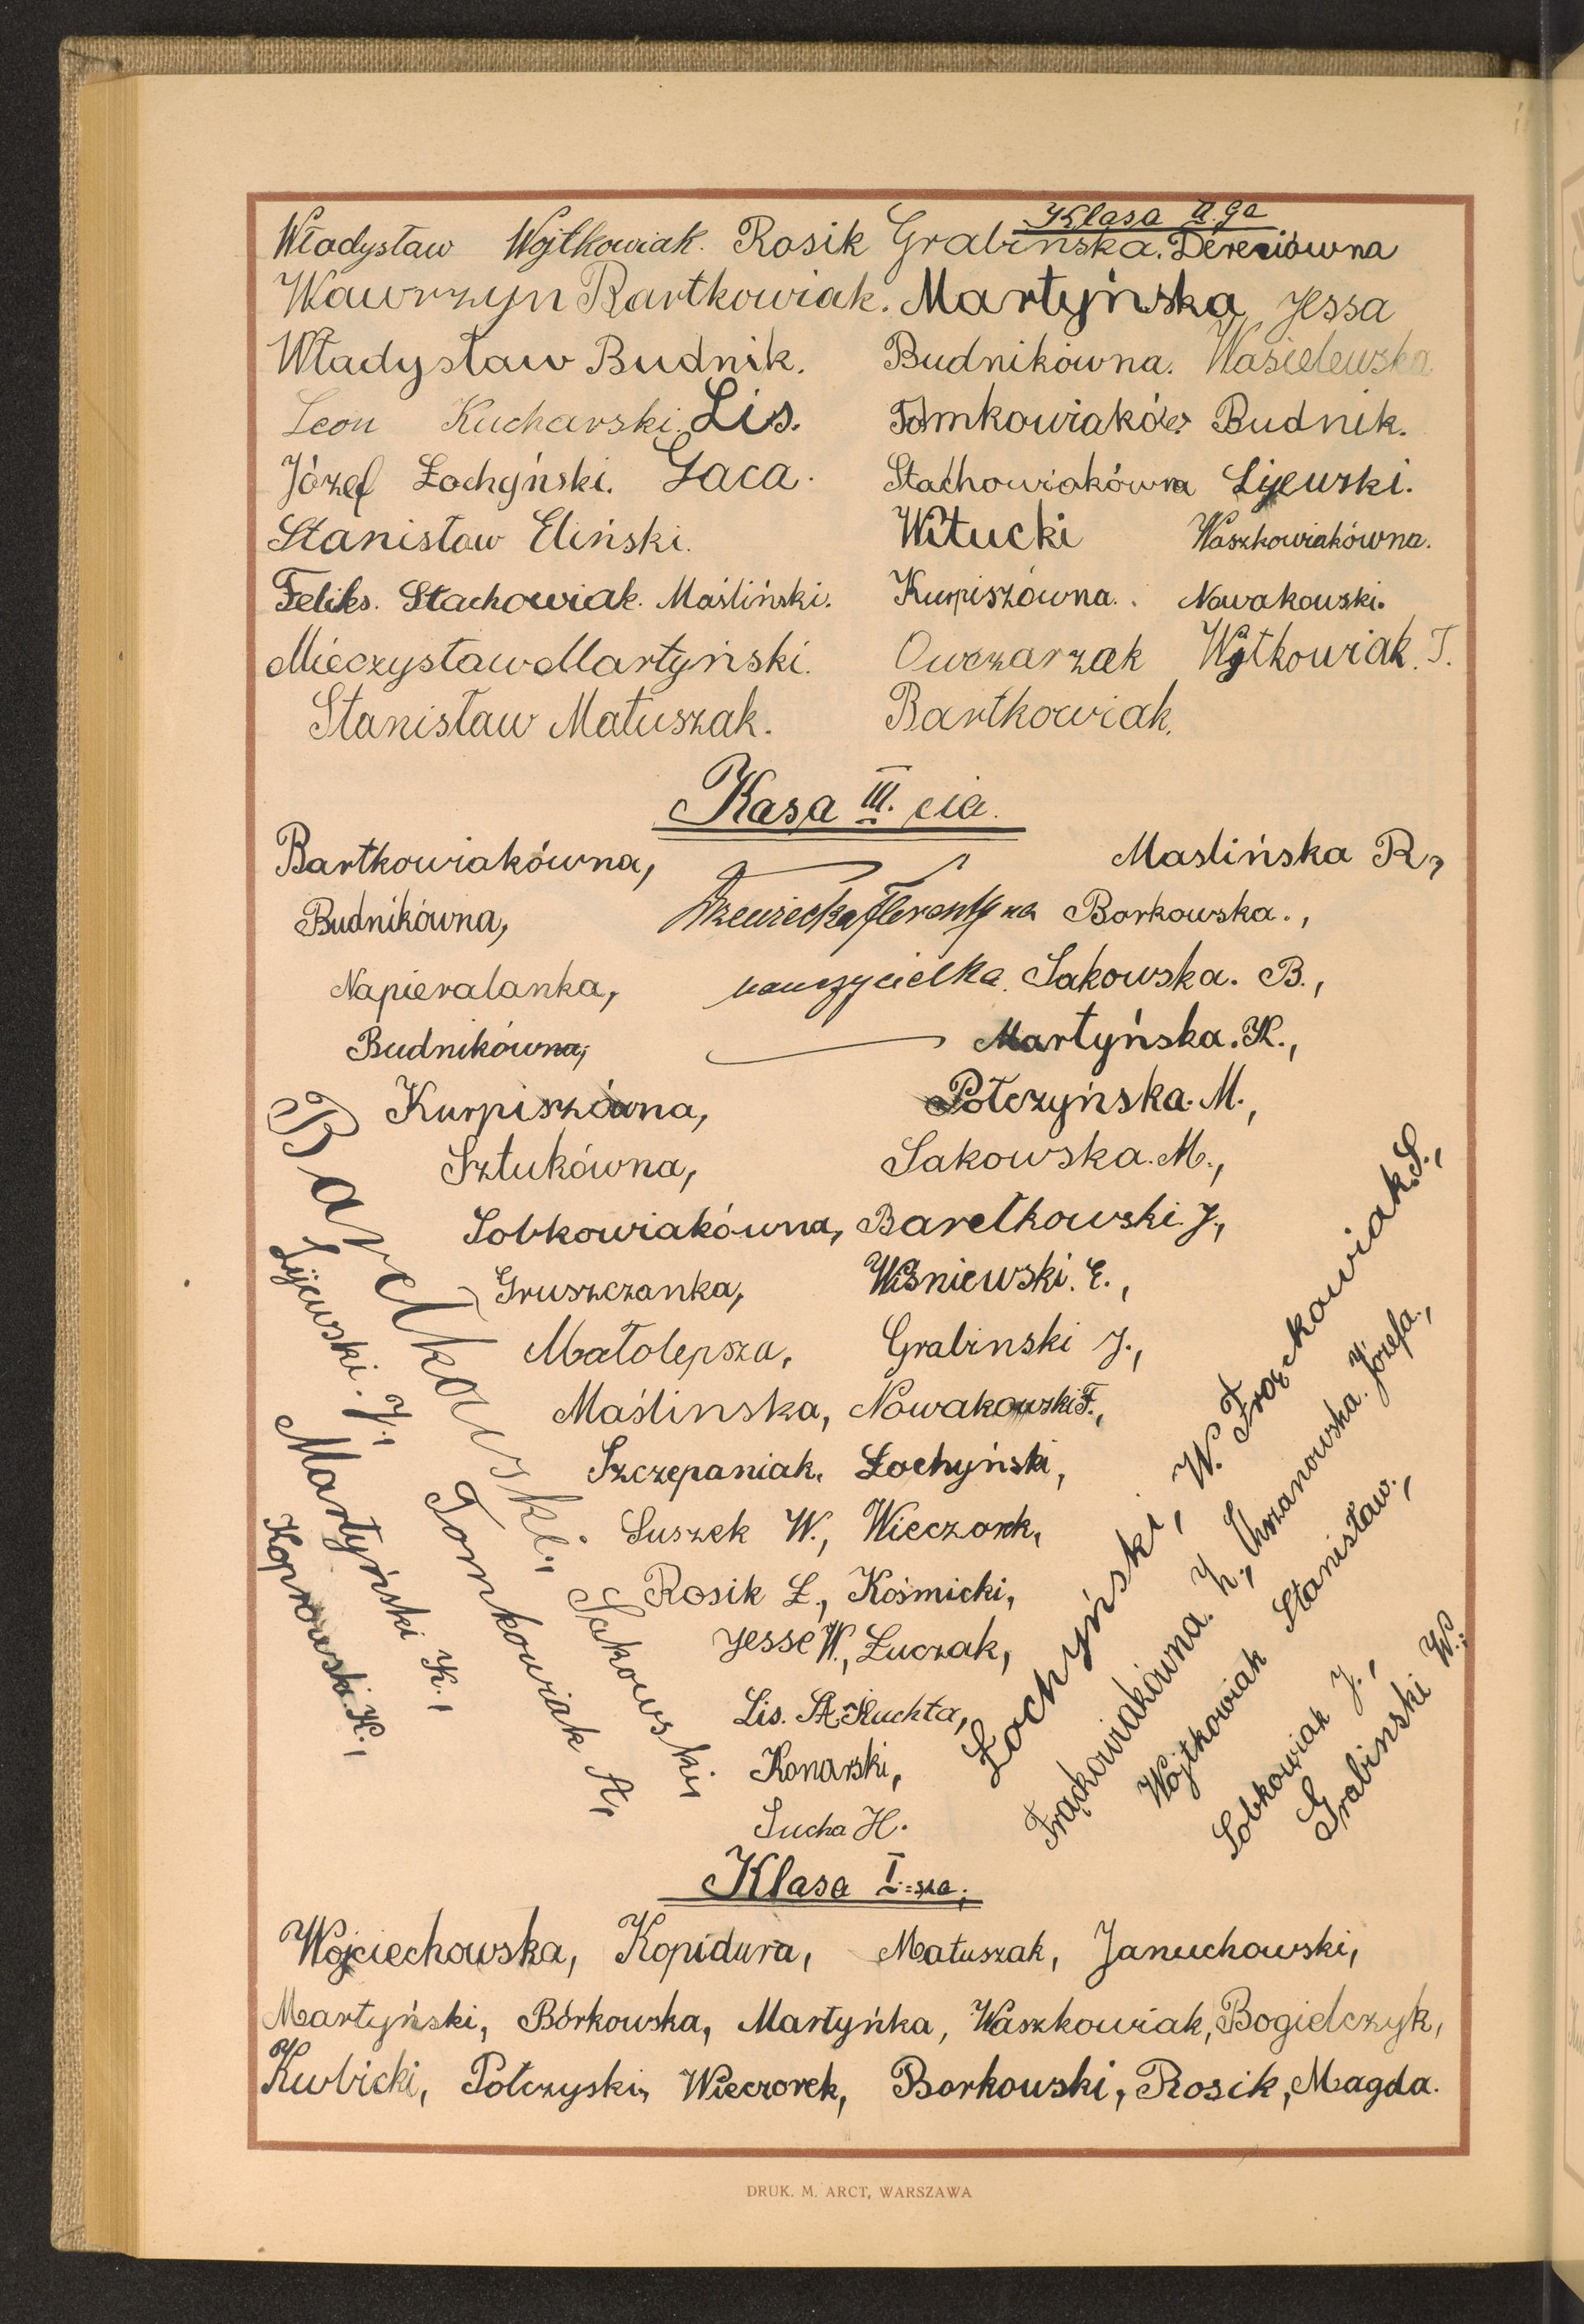 Klasa II.ga
Władysław Wojtkowiak. Rosik Grabińska. Dereziówna
Wawrzyn Bartkowiak. Martyńska Jessa
Władysław Budnik. Budnikówna. Wasielewska
Leon Kucharski. Lis. Budnik.
Józef Łochyński. Gaca. Stachowiakówna Lijewski.
Stanisław Eliński. Witucki Waszkowiakówna.
Feliks. Stachowiak. Maśliński. Kurpiszówna. Nowakowski.
Mieczysław Martyński. Owczarzak Wojtkowiak. T.
Stanisław Matuszak. Bartkowiak.
Kasa III. cia.
Bartkowiakówna, Maslińska R,
Budnikówna, Drzewiecka Florentyna Borkowska.,
Napieralanka, nauczycielka. Sakowska. B.,
Budnikówna, Martyńska. K.,
Kurpiszówna, Połczyńska. M.,
Sztukówna, Sakowska. M.,
Sobkowiakówna, Barełkowski. J.,
Gruszczanka, Wiśniewski. E.,
Małolepsza, Grabinski J.,
Maślinska, Nowakowski F.,
Szczepaniak, Łochyński,
Suszek W., Wieczorek,
Rosik L., Kośmicki,
Jesse W., Łuczak,
Lis. St. Kuchta,
Konarski,
Sucha H.
Barełkowski.,
Lijewski. J.,
Martyński K.,
Koprowski. K.,
Tomkowiak A,
Sakowski,
Łochyński, W. Frąckowiak. S.,
Frąckowiakówna. Z., Chrzanowska. Józefa.,
Wojtkowiak Stanisław.,
Sobkowiak J.,
Grabinski W.,
Klasa I.=sza,
Wojciechowska, Kopidura, Matuszak, Januchowski,
Martyński, Borkowska, Martyńka, Waszkowiak, Bogielczyk,
Kubicki, Połczyski, Wieczorek, Borkowski, Rosik, Magda.
DRUK. M. ARCT, WARSZAWA